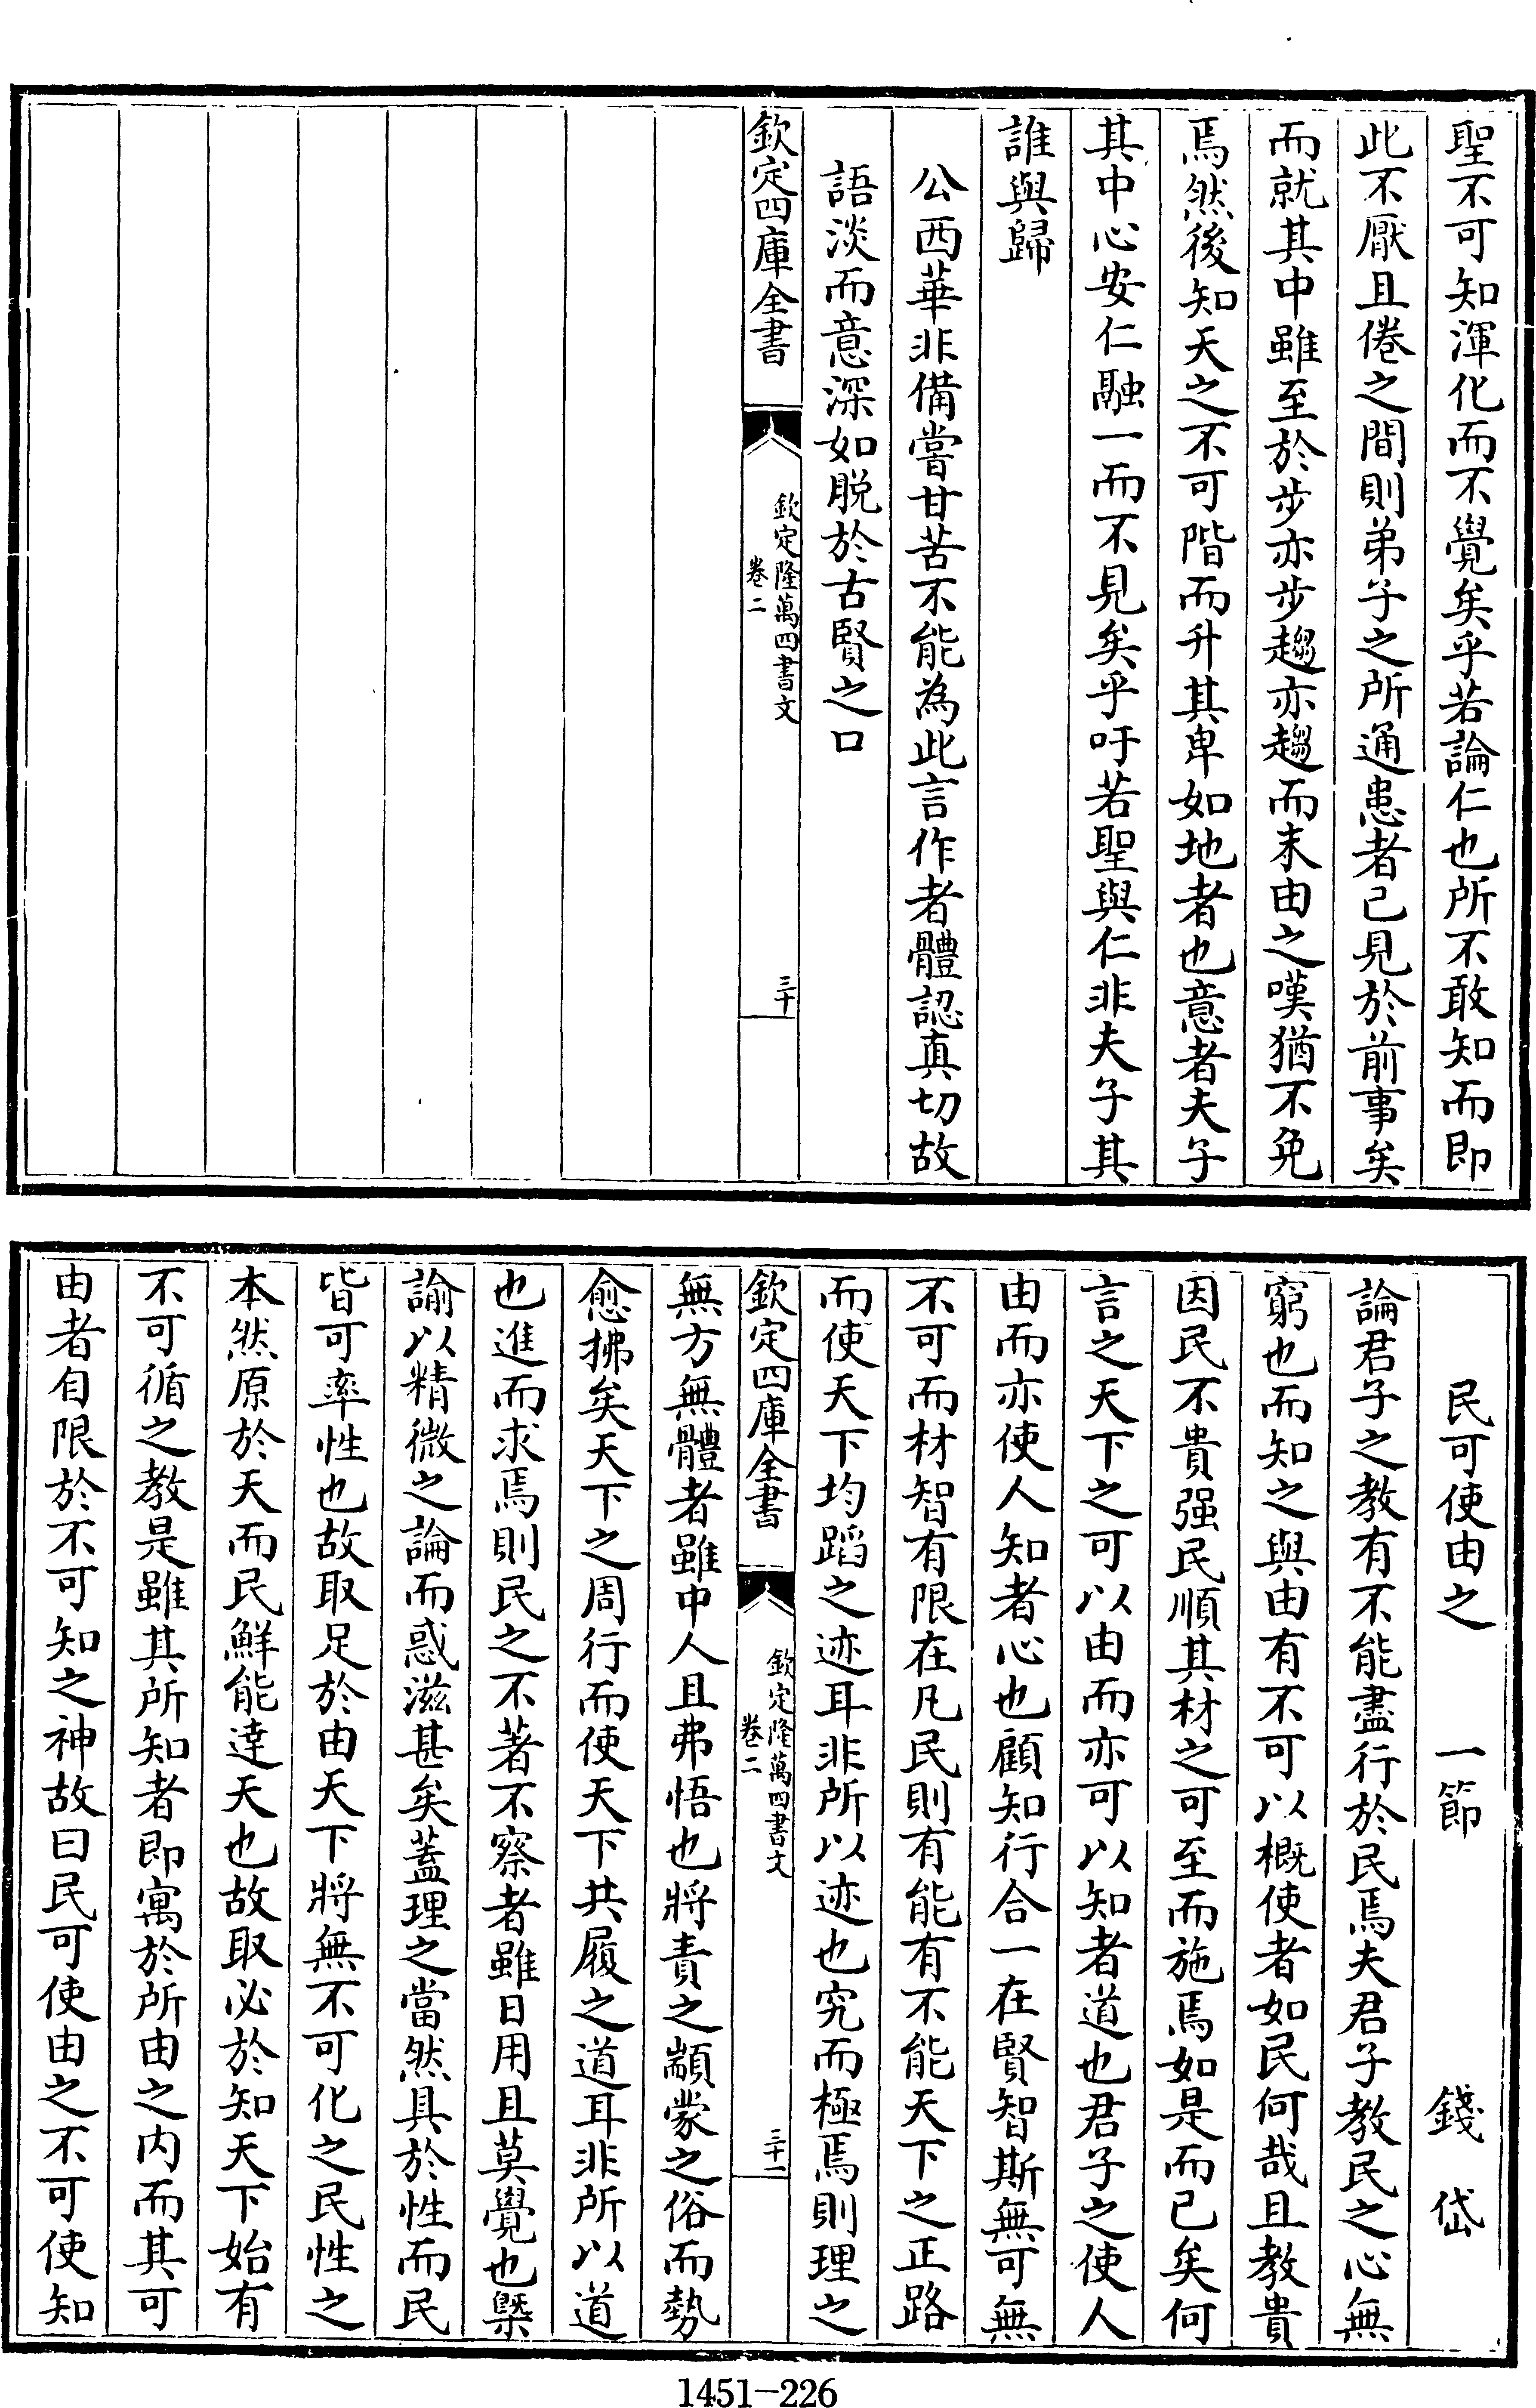 聖不可知渾化而不覺矣乎若論仁也所不敢知而即
此不厭且倦之間則弟子之所通患者已見於前事矣
而就其中雖至於步亦步趨亦趨而末由之嘆猶不免
焉然後知天之不可階而升其卑如地者也意者夫子
其中心安仁融一而不見矣乎吁若聖與仁非夫子其
誰與歸
公西華非備嘗甘苦不能為此言作者體認真切故
語淡而意深如脱於古賢之口
欽定四庫全書
欽定隆萬四書文
卷二
三十
民可使由之 一節 錢岱
論君子之教有不能盡行於民焉夫君子教民之心無
窮也而知之與由有不可以概使者如民何哉且教貴
因民不貴强民順其材之可至而施焉如是而已矣何
言之天下之可以由而亦可以知者道也君子之使人
由而亦使人知者心也顧知行合一在賢智斯無可無
不可而材智有限在凡民則有能有不能天下之正路
而使天下均蹈之迹耳非所以迹也究而極焉則理之
欽定四庫全書
欽定隆萬四書文
卷二
三十一
無方無體者雖中人且弗悟也將責之顓蒙之俗而勢
愈拂矣天下之周行而使天下共履之道耳非所以道
也進而求焉則民之不著不察者雖日用且莫覺也槩
諭以精微之論而惑滋甚矣蓋理之當然具於性而民
皆可率性也故取足於由天下將無不可化之民性之
本然原於天而民鮮能達天也故取必於知天下始有
不可循之教是雖其所知者即寓於所由之内而其可
由者自限於不可知之神故曰民可使由之不可使知
1451-226